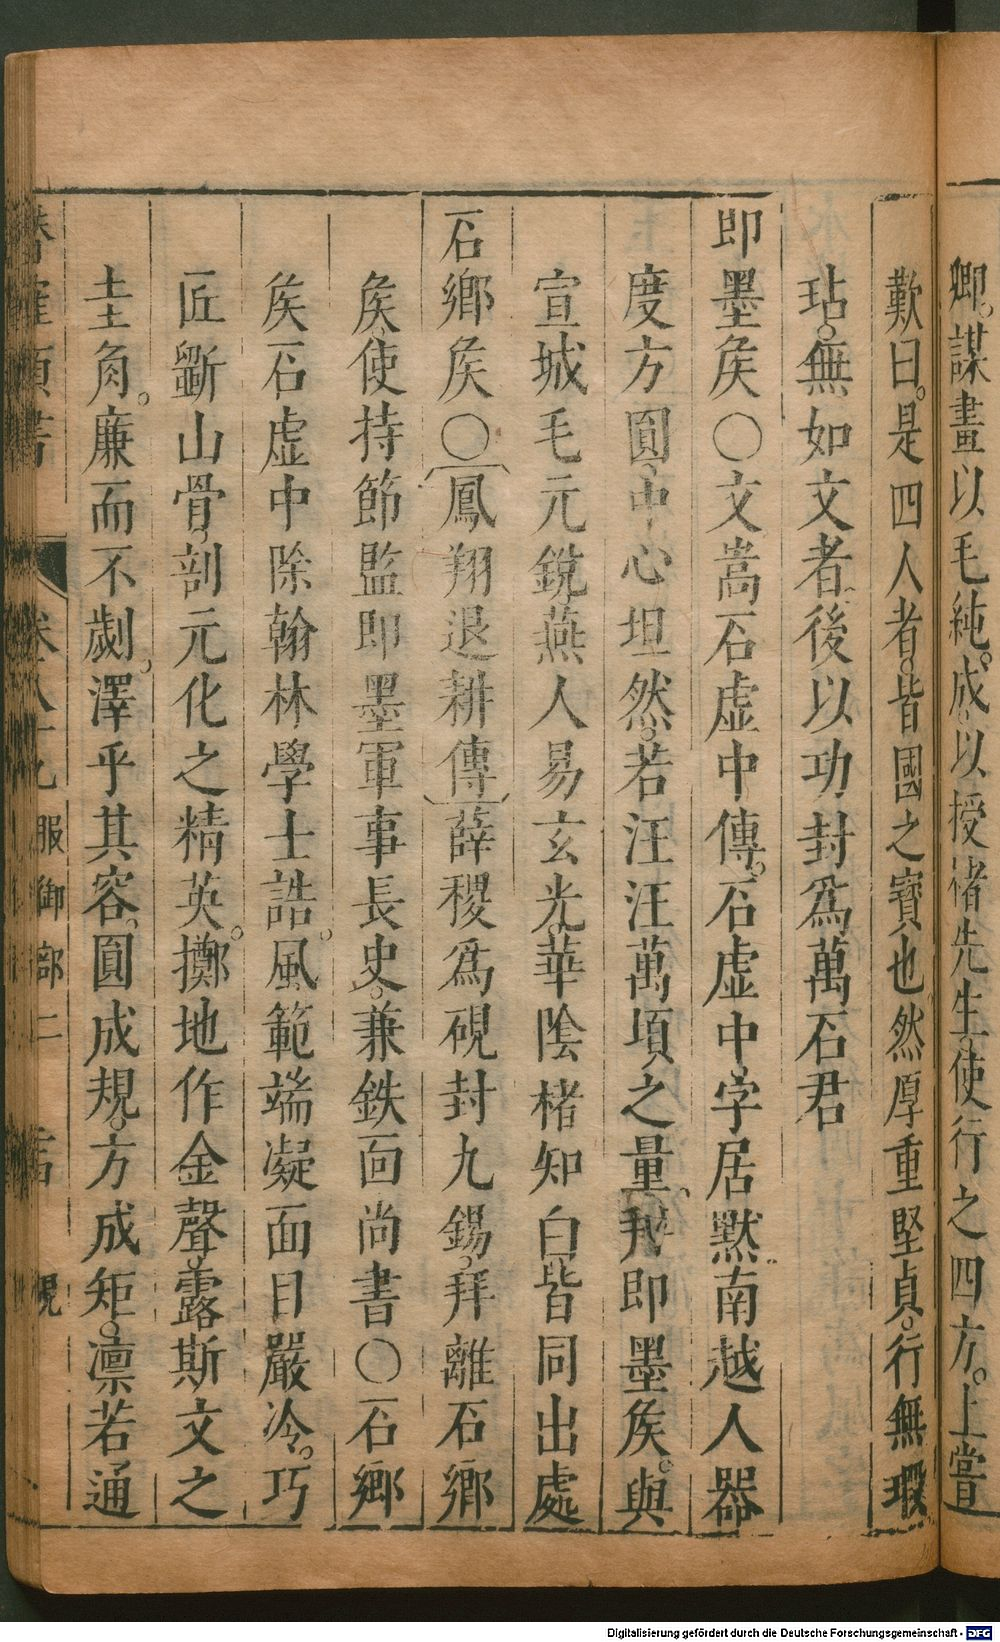 卿。謀畫以毛純。成。以授褚先生。使行之四方。上嘗
歎曰。是四人者。皆國之寶也。然厚重堅貞。行無瑕
玷。無如文者。後以功封爲萬石君
即墨矦〇文嵩石虚中傳。石虚中。字居黙。南越人。器
度方圓。中心坦然。若汪汪萬頃之量。封即墨矦。與
宣城毛元銳。燕人易玄光。華陰楮知白。皆同出處
石鄉矦〇鳳翔退耕傳薛稷爲硯封九錫。拜離石鄉
矦。使持節監即墨軍事長史。兼鉄面尚書〇石鄉
矦石虚中除翰林學士誥。風範端凝。面目嚴冷。巧
匠斵山骨。剖元化之精英。擲地作金聲。露斯文之
圭角。廉而不劌。澤乎其容。圓成規。方成矩。凛若通
卷八十九
服御部二
硯
Digitalisierung gefördert durch die Deutsche Forschungsgemeinschaft - DFG